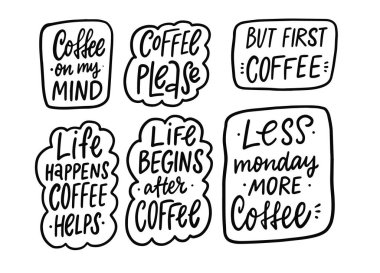 Coffee
on my
MIND
COFFEE
Please
BUT FIRST
COFFEE
Life
HAPPENS
COFFEE
HELPS
LiFE
BEGINS
after
COFFEE
LESS
monday
MORE
Coffee